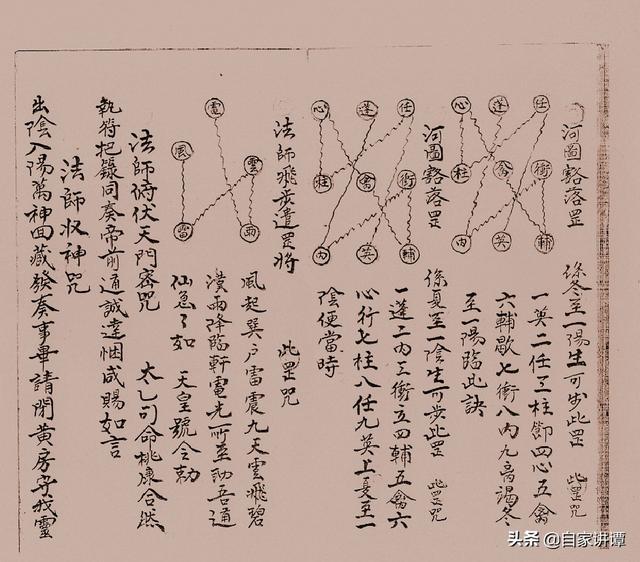 河圖豁落罡
係冬至一陽生可步此罡 此罡咒
一英二任三柱卽四心五禽
六輔歇七衝八內九
冬
至一陽臨此訣
心 蓬 任
柱 禽 衝
內 英 輔
河圖豁落罡
係夏至一陰生可步此罡 此罡咒
一蓬二內三衝立四輔五禽六
心行七柱八任九英上夏至一
陰便當時
心 蓬 任
柱 禽 衝
內 英 輔
法師飛步遣罡將
此罡咒
風起巽户雷震九天雲飛碧
漢雨降臨軒電光所至助吾通
仙急了如 天皇號令勅
電
風 雲
雷 雨
法師俯伏天門密咒 太乙司命桃康合然
執符把籙同奏帝前通誠達悃咸賜如言
法師收神咒
出陰入陽萬神回藏發奏事畢請閉黄房守我靈
头条 @自家讲谭